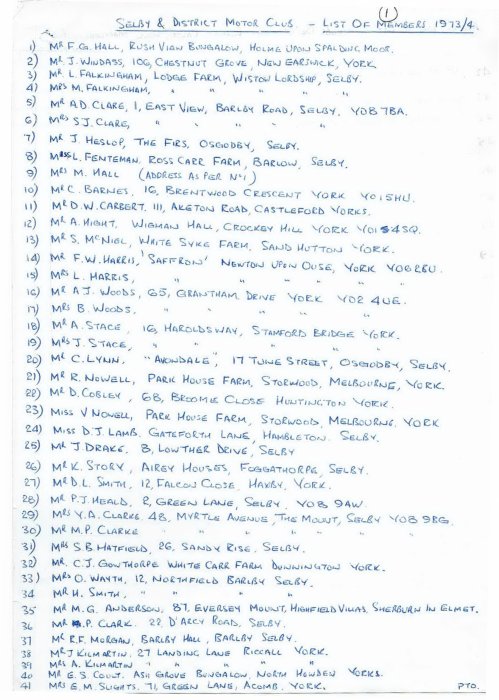 (1)
SELBY & DISTRICT MOTOR CLUB. - LIST OF MEMBERS 1973/4.
1) MR F.G. HALL, RUSH VIEW BUNGALOW, HOLME UPON SPALDING MOOR.
2) MR J. WINDASS, 106, CHESTNUT GROVE, NEW EARSWICK, YORK
3) MR L FALKINGHAM, LODGE FARM, WISTOW LORDSHIP, SELBY.
4) MRS M. FALKINGHAM, " " " "
5) MR A.D. CLARE, 1, EAST VIEW, BARLBY ROAD, SELBY. YO8 7BA.
6) MRS S.J. CLARE, " " " "
7) MR J. HESLOP, THE FIRS, OSGODBY, SELBY.
8) MISS L. FENTEMAN. ROSS CARR FARM, BARLOW, SELBY.
9) MRS M. HALL (ADDRESS AS PER No 1)
10) MR C. BARNES, 16, BRENTWOOD CRESCENT YORK YO1 5HU.
11) MR D.W. CARBERT. 111, AKETON ROAD, CASTLEFORD YORKS.
12) MR A. HIGHT, WIGMAN HALL, CROCKEY HILL YORK YO1 4SQ.
13) MR S. McNIEL, WHITE SYKE FARM, SAND HUTTON YORK.
14) MR F.W. HARRIS, 'SAFFRON' NEWTON UPON OUSE, YORK YO6 2BU.
15) MRS L. HARRIS, " " " "
16) MR A.J. WOODS, 65, GRANTHAM DRIVE YORK YO2 4UE.
17) MRS B. WOODS, " " " "
18) MR A. STACE, 16, HAROLDSWAY, STAMFORD BRIDGE YORK.
19) MRS J. STACE, " " " "
20) MR C. LYNN, "AVONDALE", 17 TUNE STREET, OSGODBY, SELBY.
21) MR R. NOWELL, PARK HOUSE FARM, STORWOOD, MELBOURNE, YORK.
22) MR D. COBLEY, 68, BROOME CLOSE HUNTINGTON YORK.
23) MISS V NOWELL, PARK HOUSE FARM, STORWOOD, MELBOURNE. YORK
24) MISS D.J. LAMB. GATEFORTH LANE, HAMBLETON. SELBY.
25) MR J. DRAKE. 8, LOWTHER DRIVE, SELBY
26) MR K. STORY, AIREY HOUSES, FOGGATHORPE, SELBY.
27) MR D.L. SMITH, 12, FALCON CLOSE, HAXBY, YORK.
28) MR P.J. HEALD, 2, GREEN LANE, SELBY. YO8 9AW.
29) MRS Y.A. CLARKE 48, MYRTLE AVENUE, THE MOUNT, SELBY YO8 9BG.
30) MR M.P. CLARKE " " " " "
31) MRS S.B. HATFIELD, 26, SANDY RISE, SELBY.
32) MR. C.J. GOWTHORPE WHITE CARR FARM DUNNINGTON YORK.
33) MRS O. WAYTH, 12, NORTHFIELD BARLBY SELBY.
34 MR H. SMITH, " " " "
35 MR M.G. ANDERSON, 87, EVERSEY MOUNT, HIGHFIELD VILLAS, SHERBURN IN ELMET.
36 MR P. CLARK. 22, D'ARCY ROAD, SELBY.
37 MR R.F. MORGAN, BARLBY HALL, BARLBY SELBY.
38 MR J KILMARTIN. 27 LANDING LANE RICCALL YORK.
39 MRS A. KILMARTIN " " " "
40 MR E.S. COULT. ASH GROVE BUNGALOW, NORTH HOWDEN YORKS.
41 MRS E.M. SLIGHTS. 71, GREEN LANE, ACOMB. YORK. PTO.